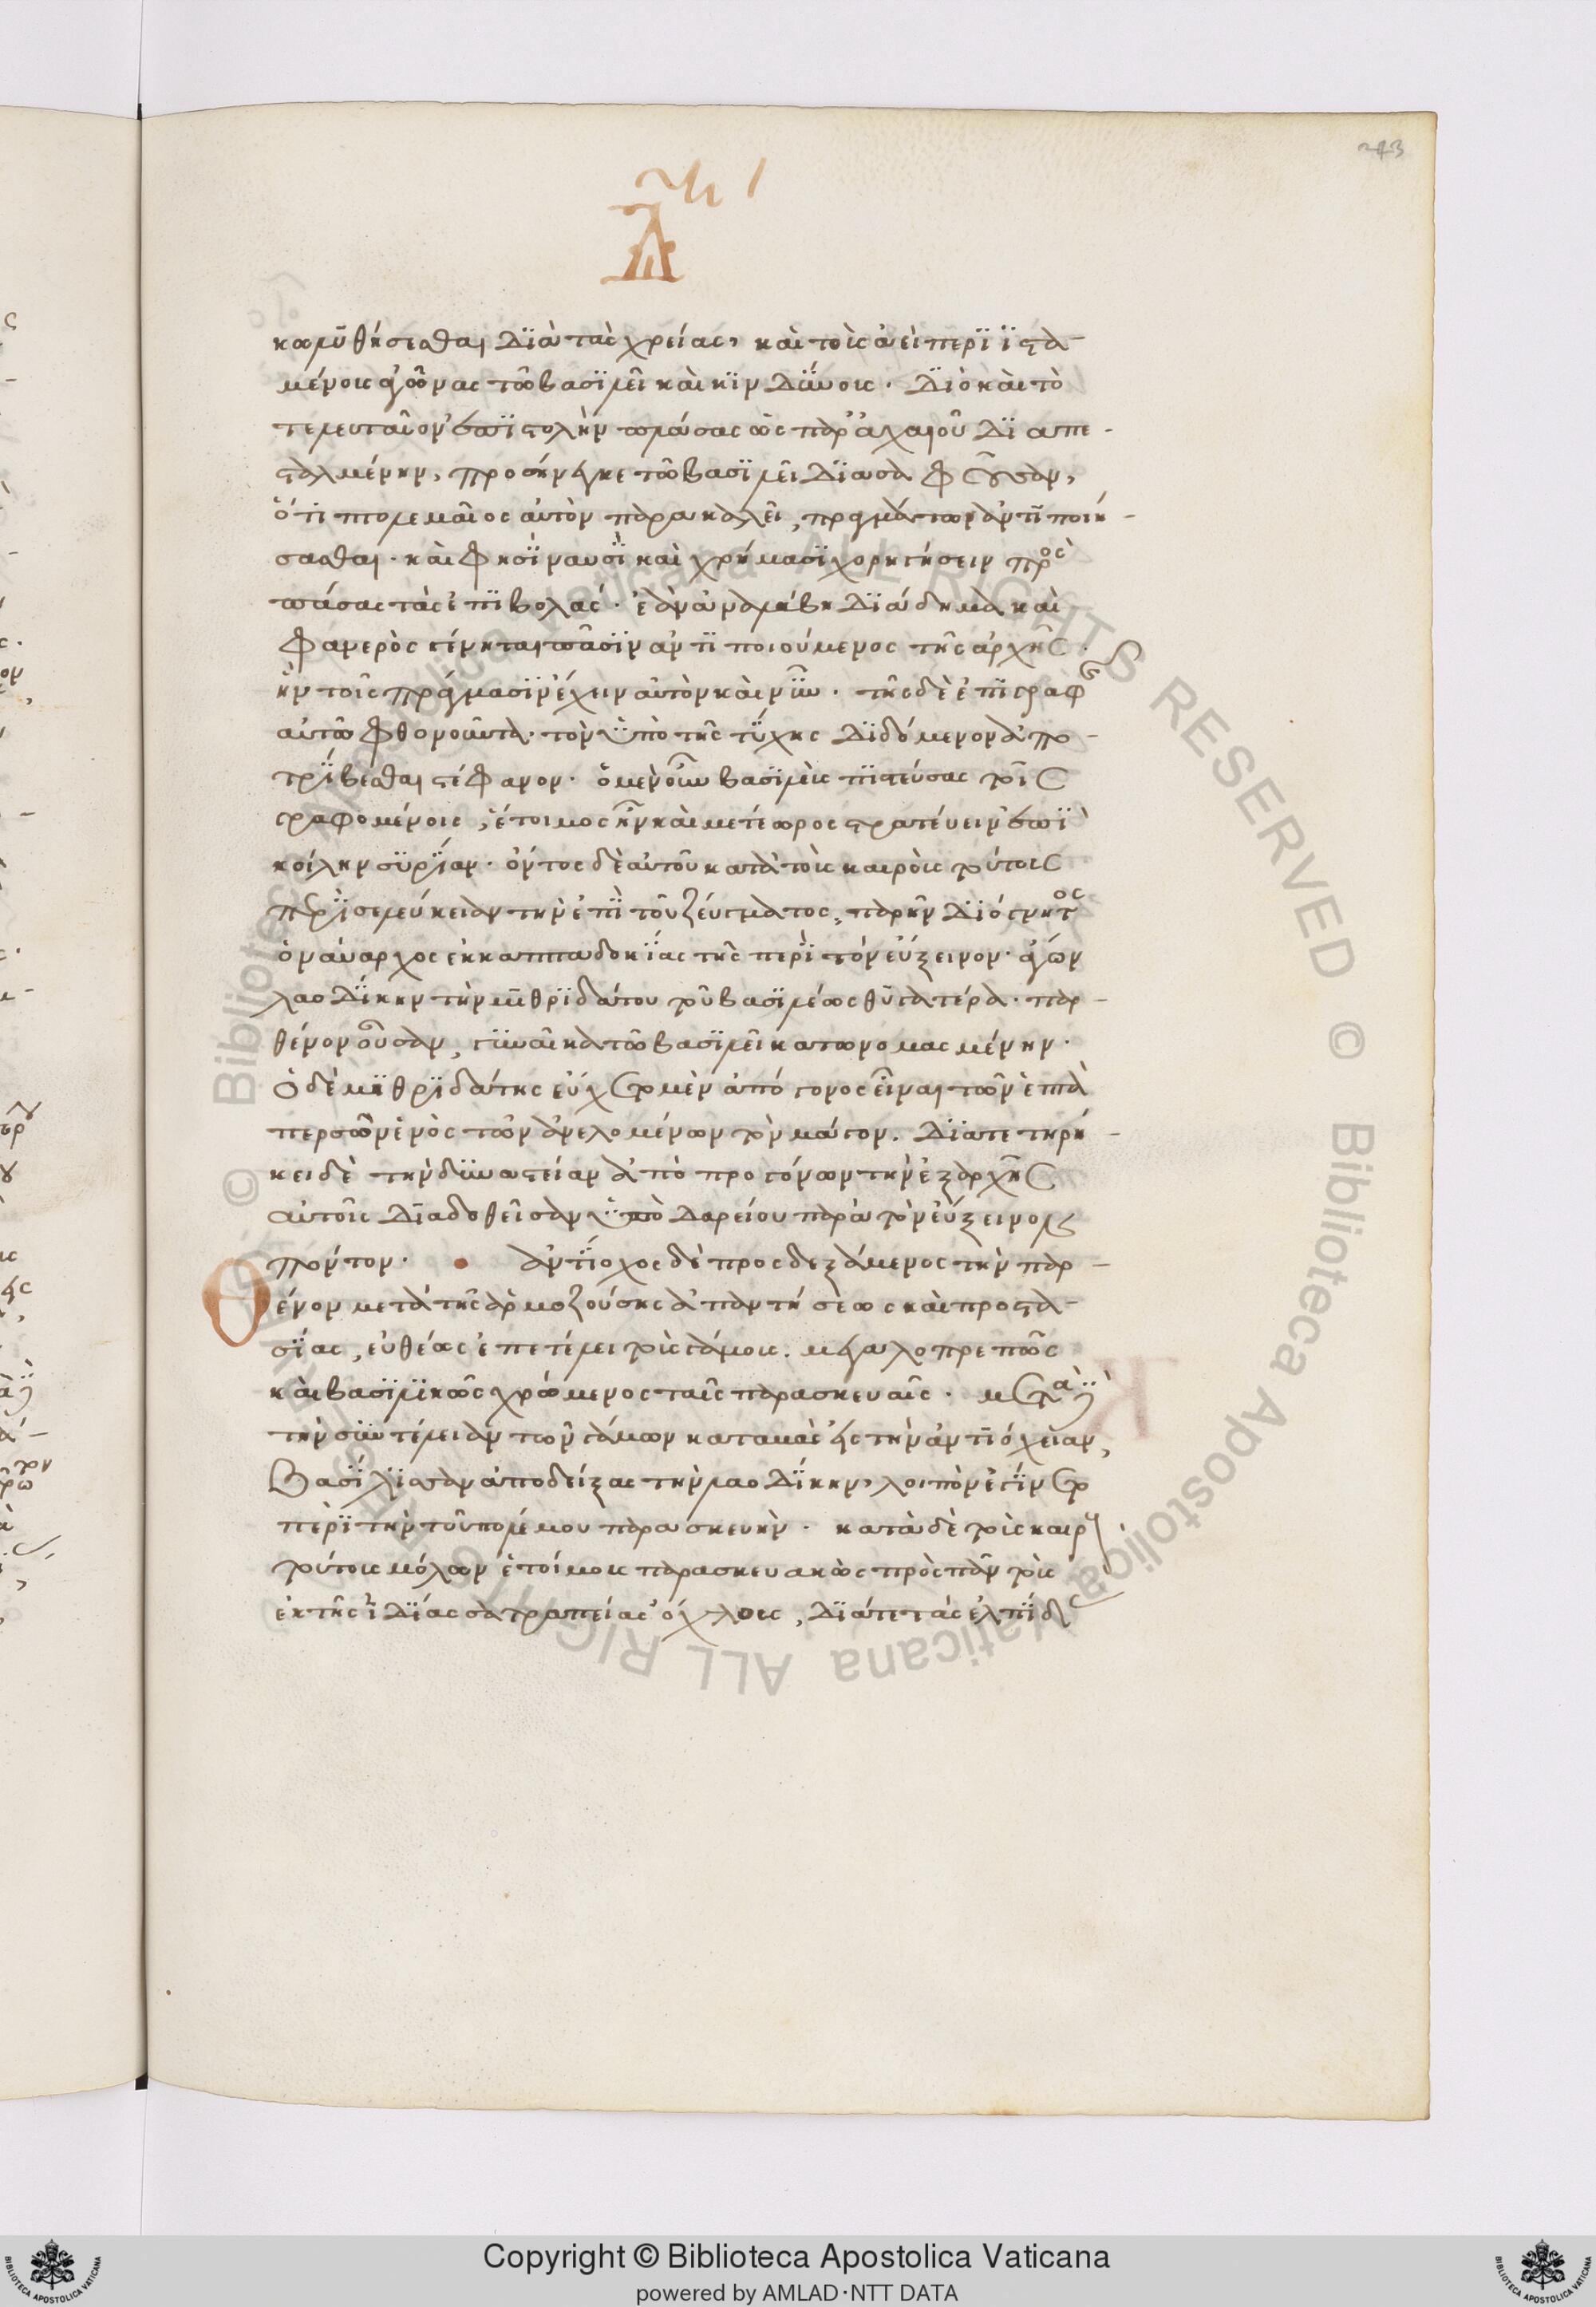 243
κωλυθήσεσθαι διὰ τὰς χρείας, καὶ τοῖς ἀεὶ περιϊστα-
μένοις ἀγῶνας τῶ βασιλεῖ καὶ κινδύνοις. διὸ καὶ τὸ
τελευταῖον ἐπιστολὴν πλάσας ὡς παρ' ἀχαιοῦ διαπε-
σταλμένην, προσήνεγκε τῶ βασιλεῖ διασαφοῦσαν,
ὅτι πτολεμαῖος αὐτὸν παρακαλεῖ, πραγμάτων ἀντιποιή-
σασθαι. καὶ φησὶ ναυσὶ καὶ χρήμασι χορηγήσειν πρὸς
πάσας τὰς ἐπιβολάς. ἐὰν ἀναλάβη διάδημα καὶ
φανερὸς γένηται πᾶσιν ἀντιποιούμενος τῆς ἀρχῆς.
ἣν τοῖς πράγμασιν ἔχειν αὐτὸν καὶ νῦν. τῆς δὲ ἐπιγραφῆς
αὐτῶ φθονοῦντα. τὸν ὑπὸ τῆς τύχης διδόμενον ἀπο-
τρίβεσθαι στέφανον. ὁ μὲν οὖν βασιλεὺς πιστεύσας τοῖς
γραφομένοις, ἕτοιμος ἦν καὶ μετέωρος στρατεύειν ἐπὶ
κοίλην συρίαν. ὄντος δὲ αὐτοῦ κατὰ τοὺς καιροὺς τούτους
περὶ σελεύκειαν τὴν ἐπὶ τοῦ ζεύγματος, παρῆν διόγνητος
ὁ ναύαρχος ἐκ καππαδοκίας τῆς περὶ τὸν εὔξεινον. ἄγων
λαοδίκην τὴν μιθριδάτου τοῦ βασιλέως θυγατέρα. παρ-
θένον οὖσαν, γυναῖκα τῶ βασιλεῖ κατωνομασμένην.
ὁ δὲ μιθριδάτης εὔχετο μὲν ἀπόγονος εἶναι τῶν ἑπτὰ
περσῶν ἑνὸς τῶν ἀνελομένων τὸν μάγον. διατετηρή-
κει δὲ τὴν δυναστείαν ἀπὸ προγόνων τὴν ἐξαρχῆς
αὐτοῖς διαδοθεῖσαν ὑπὸ δαρείου παρὰ τὸν εὔξεινον
πόντον. ἀντίοχος δὲ προσδεξάμενος τὴν παρ-
Θένον μετὰ τῆς ἁρμοζούσης ἀπαντήσεως καὶ προστα-
σίας, εὐθέως ἐπετέλει τοὺς γάμους. μεγαλοπρεπῶς
καὶ βασιλικῶς χρώμενος ταῖς παρασκευαῖς. μετὰ δὲ
τὴν συντέλειαν τῶν γάμων καταβὰς εἰς τὴν ἀντιόχειαν,
βασίλισσαν ἀποδείξας τὴν λαοδίκην, λοιπὸν ἐγίνετο
περὶ τὴν τοῦ πολέμου παρασκευήν. κατὰ δὲ τοὺς καιροὺς
τούτους μόλων ἑτοίμους παρασκευακὼς πρὸς πᾶν τοὺς
ἐκ τῆς ἰδίας σατραπείας ὄχλους, διά τε τὰς ἐλπίδας